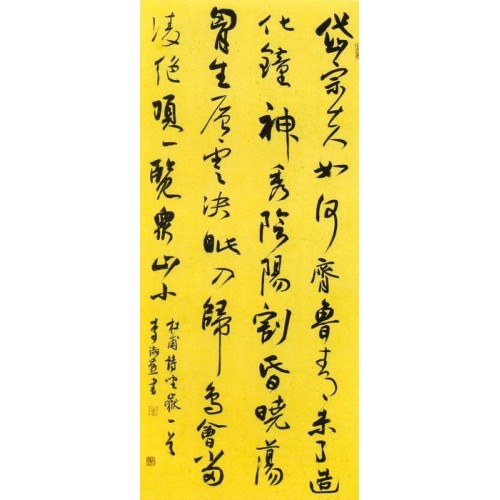 岱宗夫如何齊魯青未了造
化鐘神秀陰陽割昏曉蕩
胷生層雲決眦入歸鳥會當
凌絶頂一覽衆山小
杜甫詩望嶽一首
李淑書